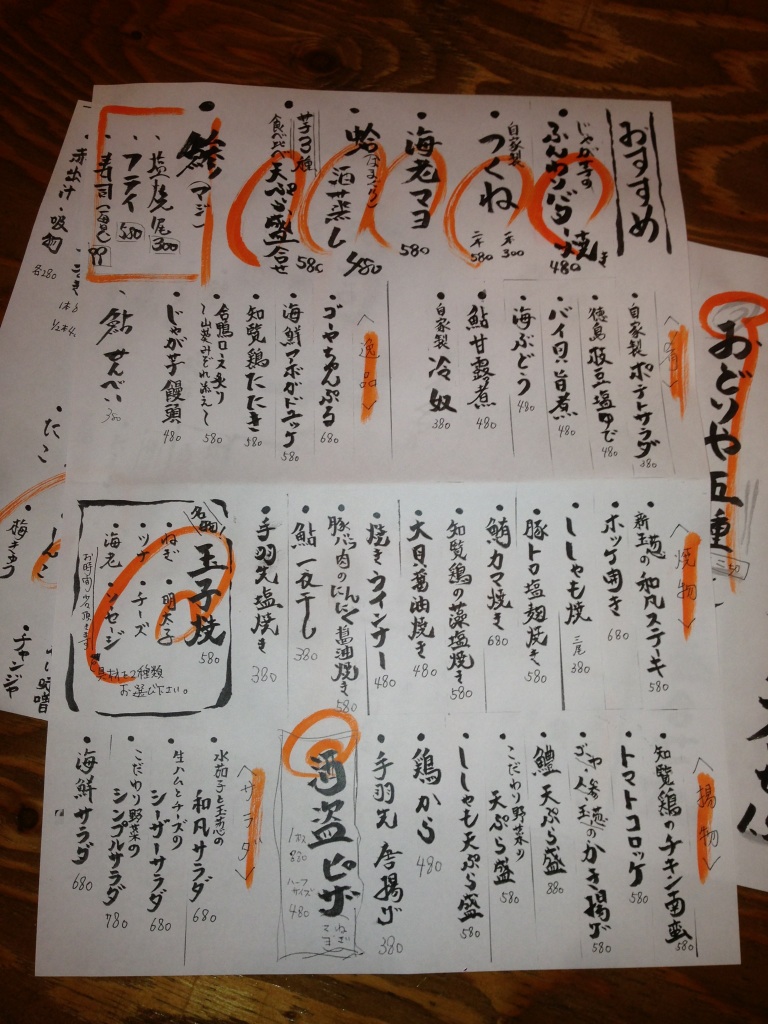 おすすめ
じゃが芋の
ふんわりバター焼き
480
自家製
つくね
一本 300
二本 580
海老マヨ
580
蛤(はまぐり)
酒蒸し
480
芋3種
食べ比べ
天ぷら盛合せ
580
鯵(アジ)
塩焼 一尾 300
フライ 580
寿司(一貫)
<肴>
自家製ポテトサラダ
380
徳島枝豆塩ゆで
480
バイ貝旨煮
480
海ぶどう
480
鮎甘露煮
480
自家製
冷奴
380
<逸品>
ゴーヤちゃんぷる
680
海鮮アボガドユッケ
580
知覧鶏たたき
580
合鴨ロース炙り
〜山葵みぞれ添え〜
580
じゃが芋饅頭
480
鮎せんべい
380
<焼物>
新玉葱の和風ステーキ
580
ホッケ開き
680
ししゃも焼
三尾 380
豚トロ塩麹焼き
580
鮪カマ焼き
680
知覧鶏の藻塩焼き
580
大貝醤油焼き
480
焼きウインナー
480
豚バラ肉のにんにく醤油焼き
580
鮎一夜干し
380
手羽先塩焼き
380
名物
玉子焼
580
・ねぎ ・明太子
・ツナ ・チーズ
・海老 ・ソーセージ
具材は2種類
お選び下さい。
お時間少々頂きます
<揚物>
知覧鶏のチキン南蛮
580
トマトコロッケ
580
ゴーヤ、人参、玉葱のかき揚げ
580
鱧天ぷら盛
880
こだわり野菜の
天ぷら盛
580
ししゃも天ぷら盛
580
鶏から
480
手羽先唐揚げ
380
酒盗ピザ
1ホール
880
ハーフ
サイズ
480
ねぎ
マヨ
<サラダ>
水茄子と玉葱の
和風サラダ
680
生ハムとチーズの
シーザーサラダ
680
こだわり野菜の
シンプルサラダ
780
海鮮サラダ
680
赤出汁・吸物
各280
たこ
梅きゅう
チャンジャ
おどりや五重